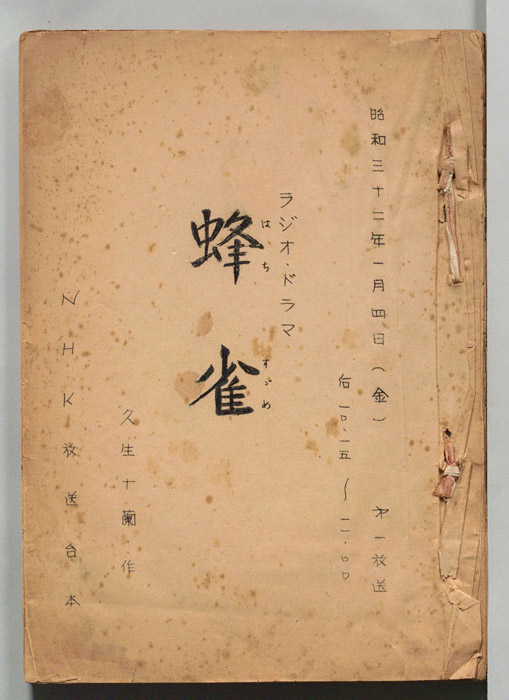 昭和三十二年一月四日(金) 才一放送
后一〇.一五〜一一.〇〇
ラジオ・ドラマ
蜂雀
はちすゞめ
久生十蘭 作
NHK放送台本